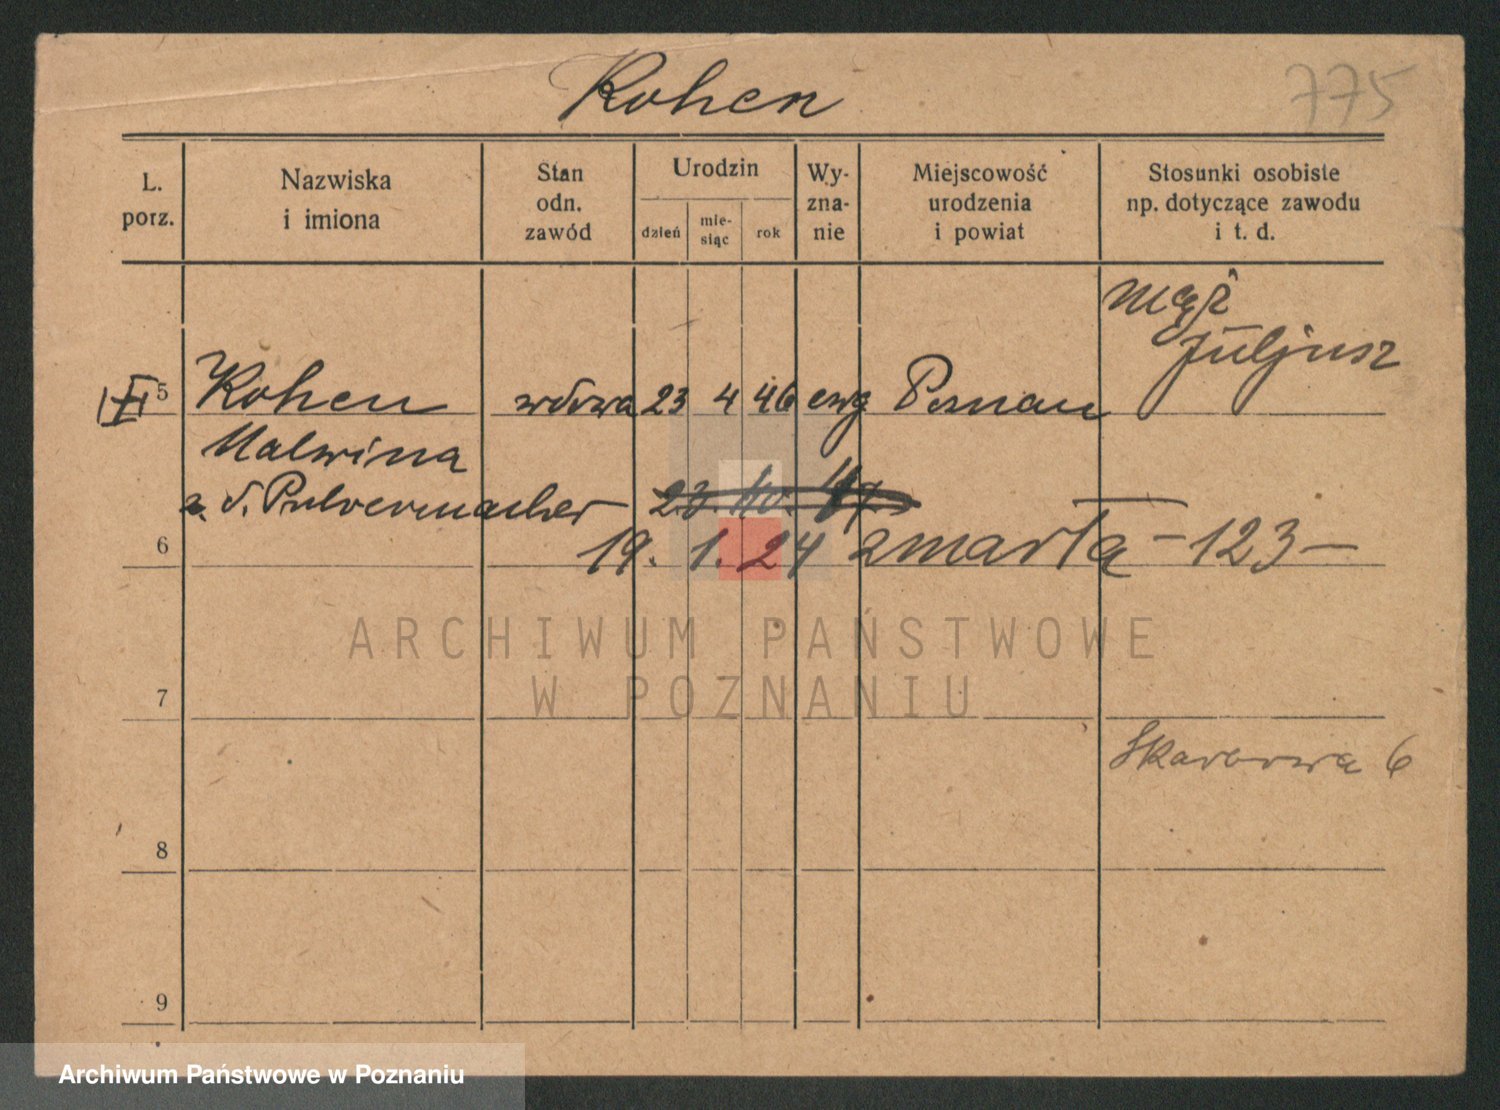 Kohen
775
L. porz.
Nazwiska i imiona
Stan odn. zawód
Urodzin
dzień
mie-siąc
rok
Wy-zna-nie
Miejscowość urodzenia i powiat
Stosunki osobiste np. dotyczące zawodu i t. d.
mąż
Juljusz
5 Kohen wdowa 23 4 46 ewg Poznań
Malwina
z d. Pulvermacher
6 19. 1. 24 zmarła – 123 –
ARCHIWUM PAŃSTWOWE
W POZNANIU
7
Skarbowa 6
8
9
Archiwum Państwowe w Poznaniu